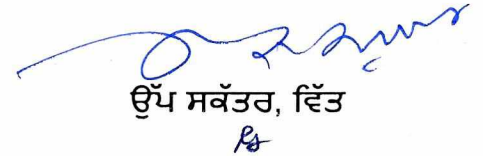 ਉੱਪ ਸਕੱਤਰ, ਵਿੱਤ